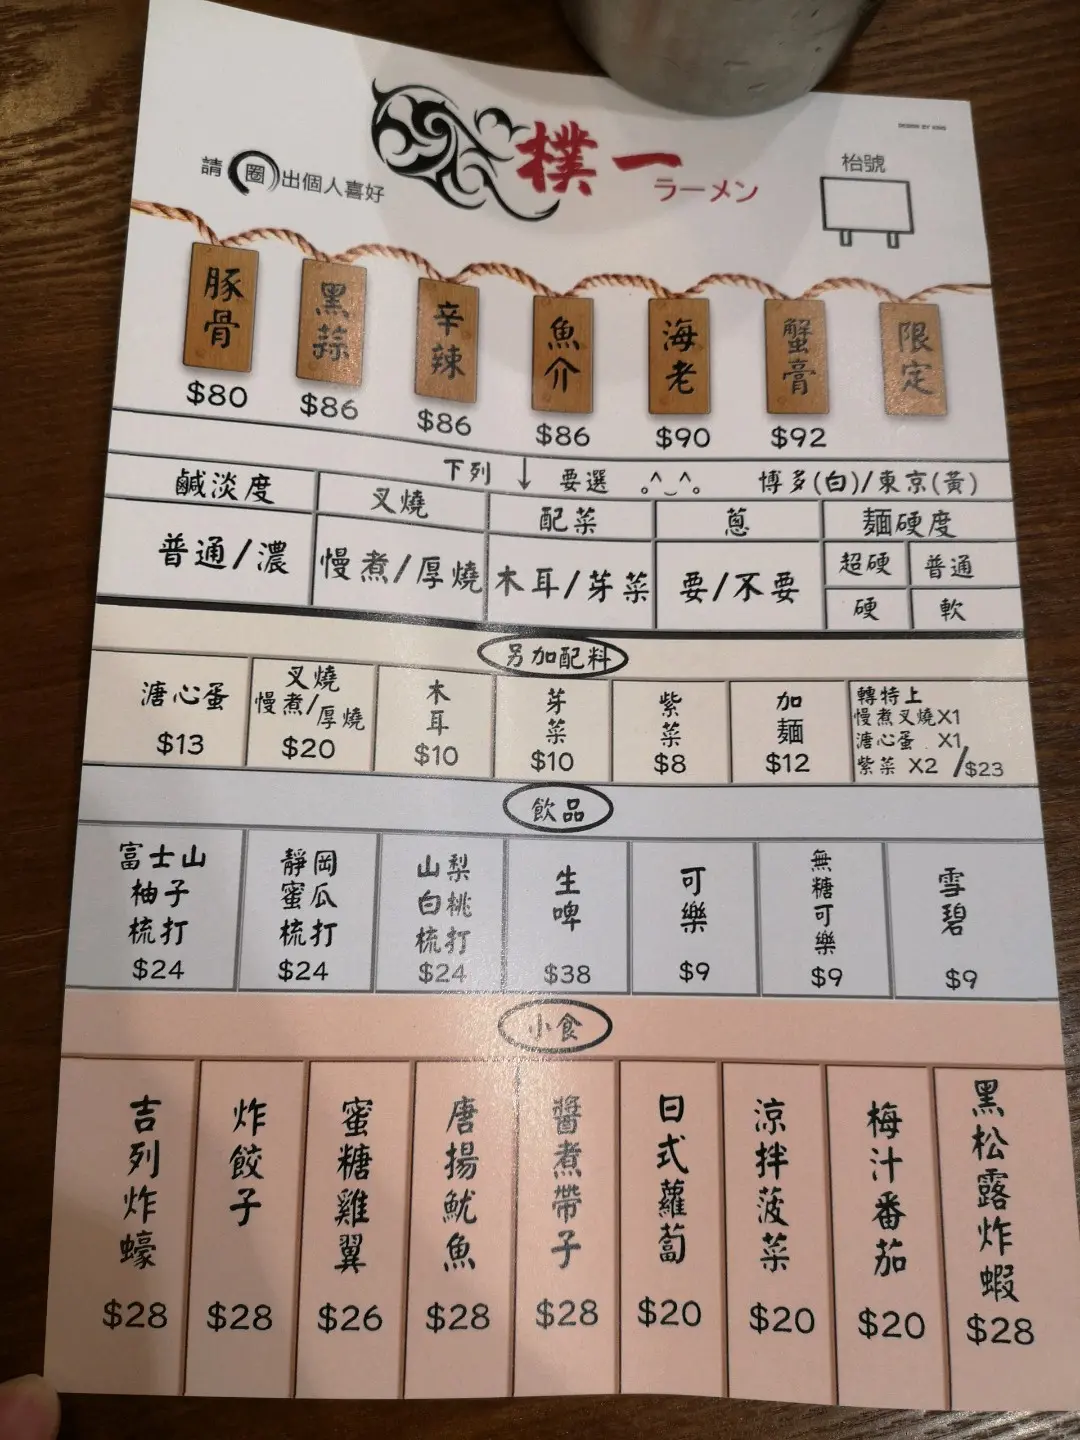 DESIGN BY KING
樸一
ラーメン
請圈出個人喜好
枱號
豚骨
$80
黑蒜
$86
辛辣
$86
魚介
$86
海老
$90
蟹膏
$92
限定
下列 ↓ 要選 。^‿^。 博多(白)/東京(黃)
鹹淡度
普通/濃
叉燒
慢煮/厚燒
配菜
木耳/芽菜
蔥
要/不要
麵硬度
超硬
普通
硬
軟
另加配料
溏心蛋
$13
叉燒
慢煮/厚燒
$20
木耳
$10
芽菜
$10
紫菜
$8
加麵
$12
轉特上
慢煮叉燒X1
溏心蛋 X1
紫菜 X2 /$23
飲品
富士山
柚子
梳打
$24
靜岡
蜜瓜
梳打
$24
山梨
白桃
梳打
$24
生啤
$38
可樂
$9
無糖可樂
$9
雪碧
$9
小食
吉列炸蠔
$28
炸餃子
$28
蜜糖雞翼
$26
唐揚魷魚
$28
醬煮帶子
$28
日式蘿蔔
$20
涼拌菠菜
$20
梅汁番茄
$20
黑松露炸蝦
$28